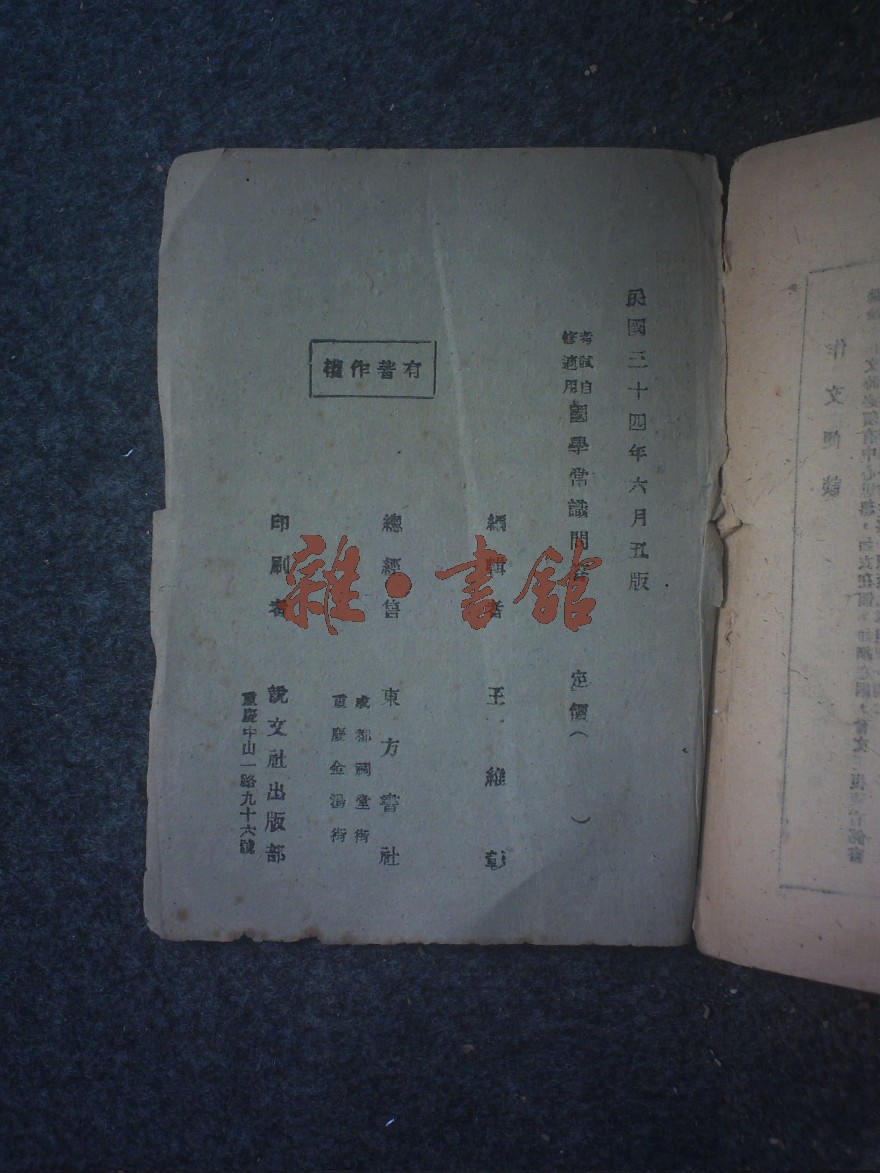 作文便談
民國三十四年六月五版
考試自
修適用
國學常識問答 定價( )
編輯者 王維彰
總經售 東方書社
成都祠堂街
重慶金湯街
印刷者 說文社出版部
重慶中山一路九十六號
有著作權
雜·書館